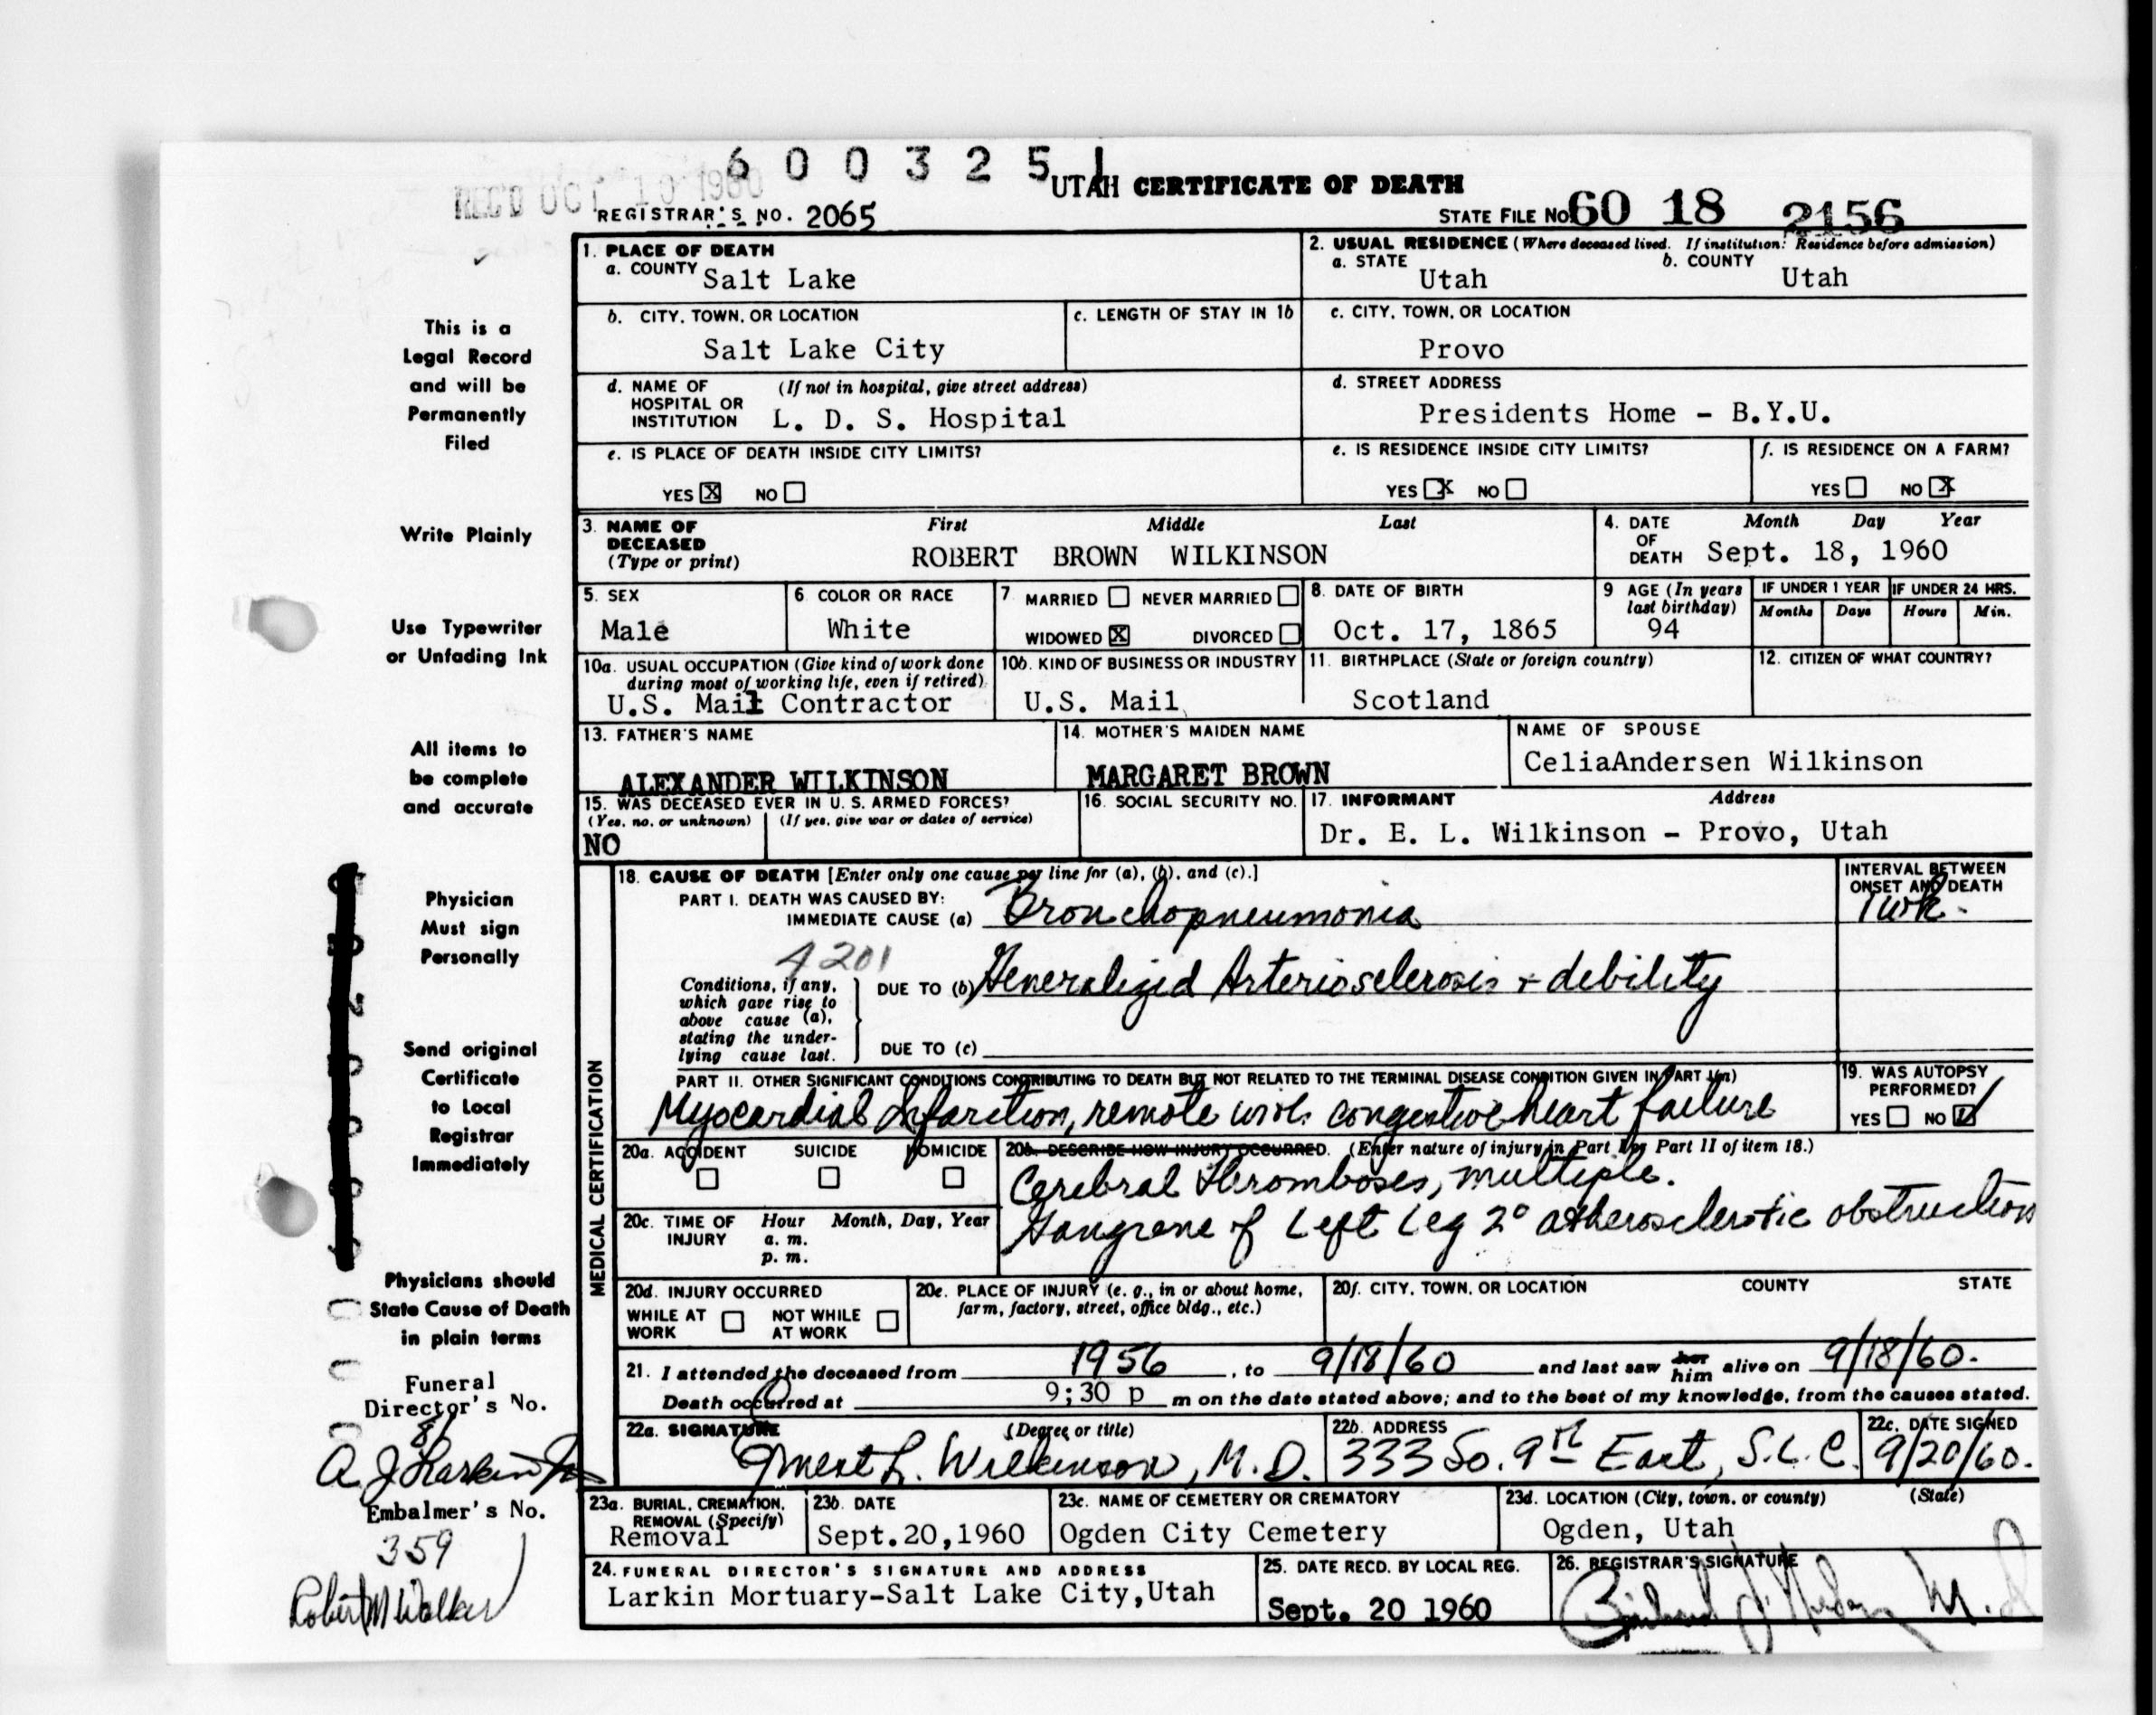 6003251
REC'D OCT 10 1960
UTAH CERTIFICATE OF DEATH
REGISTRAR'S NO. 2065
STATE FILE No. 60 18 2156
1. PLACE OF DEATH
a. COUNTY Salt Lake
2. USUAL RESIDENCE (Where deceased lived. If institution: Residence before admission)
a. STATE Utah b. COUNTY Utah
b. CITY, TOWN, OR LOCATION Salt Lake City
c. LENGTH OF STAY IN 1b
c. CITY, TOWN, OR LOCATION Provo
d. NAME OF HOSPITAL OR INSTITUTION (If not in hospital, give street address) L. D. S. Hospital
d. STREET ADDRESS Presidents Home - B.Y.U.
e. IS PLACE OF DEATH INSIDE CITY LIMITS?
YES X NO
e. IS RESIDENCE INSIDE CITY LIMITS?
YES X NO
f. IS RESIDENCE ON A FARM?
YES NO X
3. NAME OF DECEASED (Type or print) First Middle Last
ROBERT BROWN WILKINSON
4. DATE OF DEATH Month Day Year
Sept. 18, 1960
5. SEX Male
6. COLOR OR RACE White
7. MARRIED NEVER MARRIED
WIDOWED X DIVORCED
8. DATE OF BIRTH Oct. 17, 1865
9 AGE (In years last birthday) 94
IF UNDER 1 YEAR Months Days
IF UNDER 24 HRS. Hours Min.
10a. USUAL OCCUPATION (Give kind of work done during most of working life, even if retired)
U.S. Mail Contractor
10b. KIND OF BUSINESS OR INDUSTRY
U.S. Mail
11. BIRTHPLACE (State or foreign country)
Scotland
12. CITIZEN OF WHAT COUNTRY?
13. FATHER'S NAME
ALEXANDER WILKINSON
14. MOTHER'S MAIDEN NAME
MARGARET BROWN
NAME OF SPOUSE
CeliaAndersen Wilkinson
15. WAS DECEASED EVER IN U. S. ARMED FORCES?
(Yes, no, or unknown) (If yes, give war or dates of service)
NO
16. SOCIAL SECURITY NO.
17. INFORMANT Address
Dr. E. L. Wilkinson - Provo, Utah
MEDICAL CERTIFICATION
18. CAUSE OF DEATH [Enter only one cause per line for (a), (b), and (c).]
INTERVAL BETWEEN ONSET AND DEATH
PART I. DEATH WAS CAUSED BY:
IMMEDIATE CAUSE (a) Bronchopneumonia 1 wk.
4201
Conditions, if any, which gave rise to above cause (a), stating the underlying cause last.
DUE TO (b) Generalized Arteriosclerosis + debility
DUE TO (c)
PART II. OTHER SIGNIFICANT CONDITIONS CONTRIBUTING TO DEATH BUT NOT RELATED TO THE TERMINAL DISEASE CONDITION GIVEN IN PART I(a)
Myocardial Infarction, remote with congestive heart failure
19. WAS AUTOPSY PERFORMED?
YES NO ✓
20a. ACCIDENT SUICIDE HOMICIDE
20b. DESCRIBE HOW INJURY OCCURRED. (Enter nature of injury in Part I or Part II of item 18.)
Cerebral Thromboses, multiple.
Gangrene of Left Leg 2° atherosclerotic obstruction
20c. TIME OF INJURY Hour Month, Day, Year
a. m.
p. m.
20d. INJURY OCCURRED
WHILE AT WORK NOT WHILE AT WORK
20e. PLACE OF INJURY (e. g., in or about home, farm, factory, street, office bldg., etc.)
20f. CITY, TOWN, OR LOCATION COUNTY STATE
21. I attended the deceased from 1956, to 9/18/60 and last saw her him alive on 9/18/60.
Death occurred at 9;30 p m on the date stated above; and to the best of my knowledge, from the causes stated.
22a. SIGNATURE (Degree or title)
Ernest L. Wilkinson, M.D.
22b. ADDRESS
333 So. 9th East, S.L.C.
22c. DATE SIGNED
9/20/60.
23a. BURIAL, CREMATION, REMOVAL (Specify)
Removal
23b. DATE
Sept.20,1960
23c. NAME OF CEMETERY OR CREMATORY
Ogden City Cemetery
23d. LOCATION (City, town, or county) (State)
Ogden, Utah
24. FUNERAL DIRECTOR'S SIGNATURE AND ADDRESS
Larkin Mortuary-Salt Lake City,Utah
25. DATE RECD. BY LOCAL REG.
Sept. 20 1960
26. REGISTRAR'S SIGNATURE
This is a
Legal Record
and will be
Permanently
Filed
Write Plainly
Use Typewriter
or Unfading Ink
All items to
be complete
and accurate
Physician
Must sign
Personally
Send original
Certificate
to Local
Registrar
Immediately
Physicians should
State Cause of Death
in plain terms
Funeral
Director's No.
81
A J Larkin Jr
Embalmer's No.
359
Robert M Walker